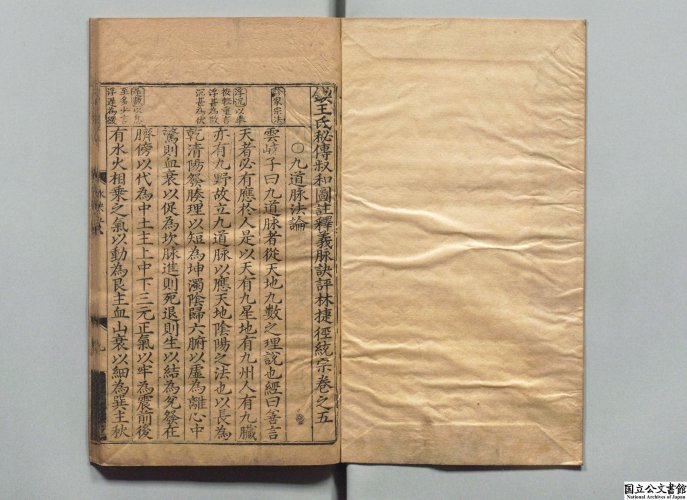 王氏秘傳叔和圖註釋義脉訣評林捷徑統宗卷之五
○九道脉法論
雲岐子曰九道脉者從天地九數之理說也經曰善言
天者必有應於人是以天有九星地有九州人有九臟
亦有九野故立九道脉以應天地陰陽之法也以長為
乾清陽發腠理以短為坤濁陰歸六腑以虛為離心中
驚則血衰以促為坎脉進則死退則生以結為兌發在
臍傍以代為中土主上中下三元正氣以牢為震前後
有水火相乗之氣以動為艮主血山衰以細為巽主秋
家宗法
浮沉以舉
按輕重言
浮甚為散
沉甚為伏
至多少言
国立公文書館
National Archives of Japan